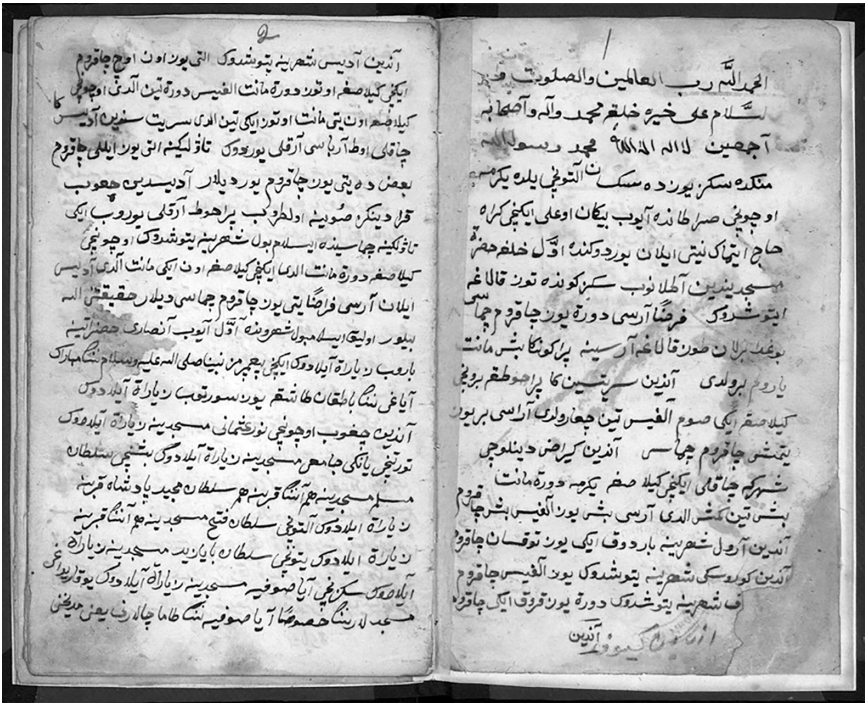 ١
الحمد لله رب العالمين والصلوة و
السلام على خيره خلقه محمد وآله وأصحابه
أجمعين لا اله الا الله محمد رسول الله
منكده سكز يوز ده سكسان آلتونچی يلده يكرمه
اوچونچی ده آيوب بيكان اوغلی ايكنچی كراه
حاج ايتماك نيتی ايلان يوردوكنده اوّل خلفه حضرة
مسجديندين آطلانوب سكز كونده تون قالاغه
ايتوشدوك فرضًا آرسی دورة يوز چاقروم چماسی
بوغده برلان طون قالاغه آرسينه پراكونكا بش مانت
ياروم برولدی آندين كا پراحوطقه برونچی
كيلاصقه ايكی صوم آلفيس تين چغارولدی آراسی بر يوز
يتمش چاقروم چماس آندين كيراض دينلوچی
شهركه چاقلی ايكنچی كيلاصغه يكرمه دورة مانت
بش تين كمش الدی آرسی بش يوز آلفيس بش چاقروم
آندين آرول شهرينه باردوق ايكی يوز توقسان چاقروم
آندين كوروسكی شهرينه يتوشدوك يوز آلفيس چاقروم
شهرينه يتوشدوك دورة يوز قروق ايكی چاقروم
آندين
2
آندين آديس شهرينه يتوشدوك التی يوز اون اوچ چاقروم
ايكنچی كيلاصغه اوتوز دورة مانت الفيس دورة تين آلدی اوچونچی
كيلاصغه اون يتی مانت اوتوز ايكی تين الدی سندين آديس كا
چاقلی اوط آرباسی آرقلی يوردوك تاؤلكينه التی يوز ايللی چاقروم
بعض ده يتی يوز چاقروم يورديلار آديسدين چغوب
قرا دينكز صُوينه اولطروب پراحوط آرقلی يوروب ايكی
تاؤلكينه چماسينده ايسلامبول شهرينه يتوشدوك اوچونچی
كيلاصغه دورة مانت الدی ايكنچی كيلاصغه اون ايكی مانت آلدی آديس
ايلان آرسی فرضًا يتی يوز چاقروم چماسی ديلار حقيقتنی الله
بيلور اوليق ايسلامبول شهرونده آوّل آيوب آنصاری حضرتينه
باروب زيارة آيلادوك ايكنچی پيغمبرمز نبينا صلی الله عليه وسلام ننك مبارك
آياغی ننك باطقان طاشقه يوز سورتوب زيارة آيلادوك
آندين چغوب اوچونچی نور عثمانی مسجدينه زيارة آيلادوك
تورتنچی يانكی جامعی مسجدينه زيارة آيلادوك بشنچی سلطان
مسجدينه هم آننك قبرينه هم سلطان مجيد پادشاه قبرينه
زيارة ايلادوك آلتونچی سلطان فتح مسجدينه هم آننك قبرينه
زيارة ايلادوك يتونچی سلطان بايازيد مسجدينه زيارة
آيلادوك سكزنچی آيا صوفيه مسجدينه زيارة آيلادوك
مسجدلارننك خصوصًا آيا صوفيه ننك يعنی